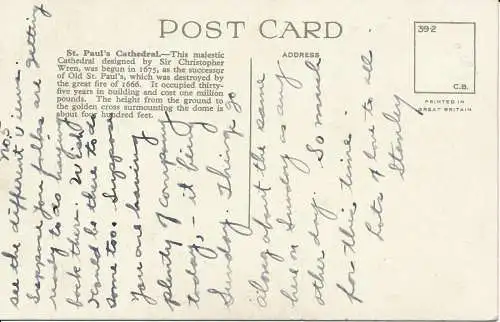 POST CARD
St. Paul's Cathedral.—This majestic
Cathedral designed by Sir Christopher
Wren, was begun in 1675, as the successor
of Old St. Paul's, which was destroyed by
the great fire of 1666. It occupied thirty-
five years in building and cost one million
pounds. The height from the ground to
the golden cross surrounding the dome is
about four hundred feet.
ADDRESS
39-2
C.B.
PRINTED IN
GREAT BRITAIN
no. 5
see the different views.
Suppose you folks are getting
ready to do having
back there. Wish I
would be there to do
some too. Suppose
you are having
plenty of company
today, - it being
Sunday. Things go
along about the same
here on Sunday as any
other day. So much
for this time.
Lots of love to all.
Stanley